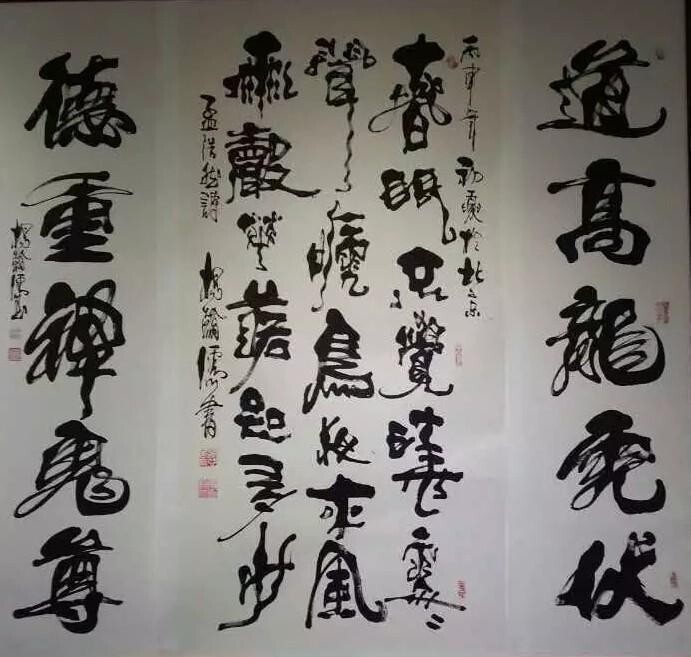 道高龍虎伏
丙申年初夏於北京
春眠不覺曉處〻
聞啼鳥夜來風
雨聲花落知多少
孟浩然詩 楊儒書
德重神鬼尊
楊儒書